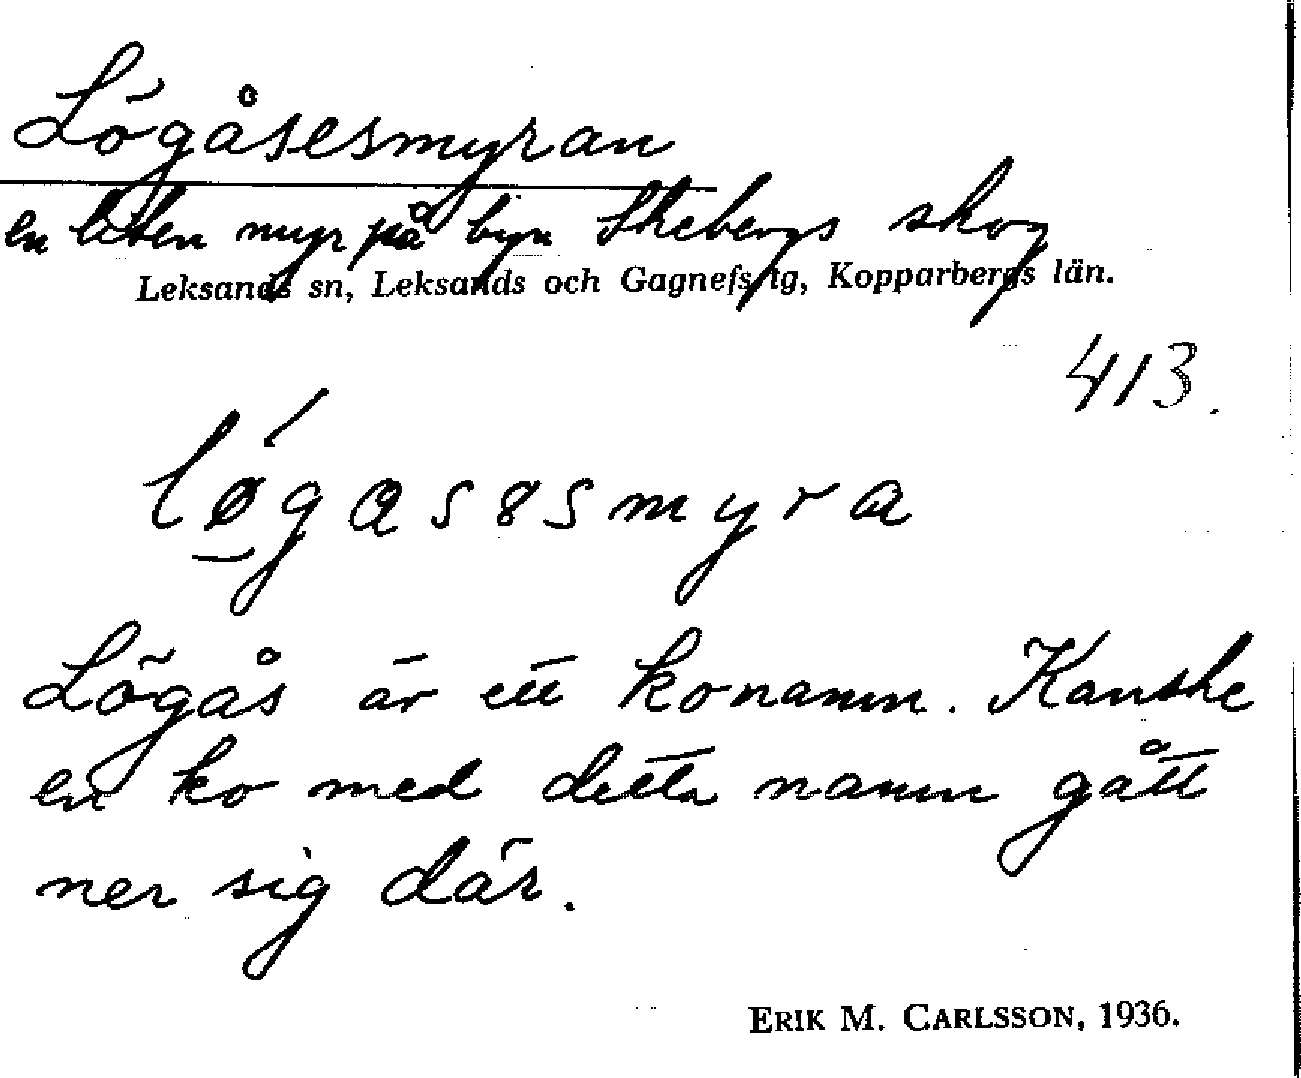 Lögåsesmyran
en liten myr på byn Skebergs skog
Leksands sn, Leksands och Gagnefs tg, Kopparbergs län.
413.
løgasəsmyra
Lögås är ett konamn. Kanske
en ko med detta namn gått
ner sig där.
ERIK M. CARLSSON, 1936.